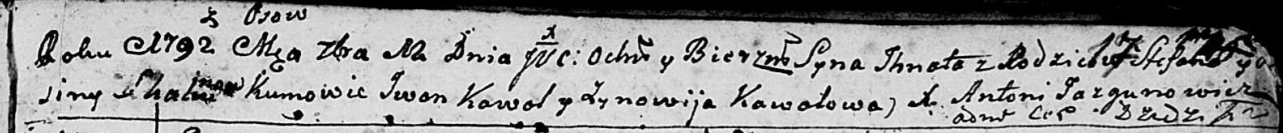 z Osow
Roku 1792 Mca 7bra 12 Dnia JXc: Ochrł y Bierzmł Syna Ihnata z Rodzicow Stefana y
siny Skalunow Kumowie Iwan Kawal y Zynowija Kawalowa, X. Antoni Jazgunowicz
adm Cer Dzedz